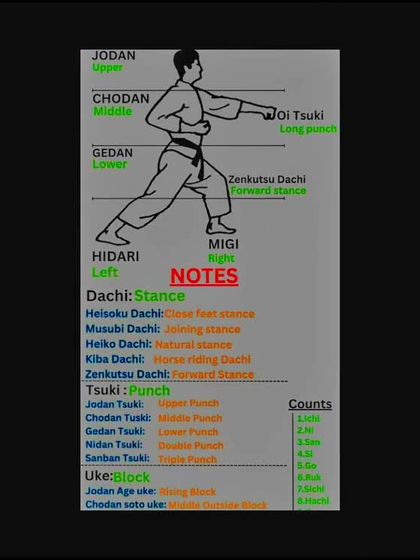 JODAN
Upper
CHODAN
Middle
Oi Tsuki
Long punch
GEDAN
Lower
Zenkutsu Dachi
Forward stance
HIDARI
Left
MIGI
Right
NOTES
Dachi: Stance
Heisoku Dachi: Close feet stance
Musubi Dachi: Joining stance
Heiko Dachi: Natural stance
Kiba Dachi: Horse riding Dachi
Zenkutsu Dachi: Forward Stance
Tsuki : Punch
Jodan Tsuki: Upper Punch
Chodan Tuski: Middle Punch
Gedan Tsuki: Lower Punch
Nidan Tsuki: Double Punch
Sanban Tsuki: Triple Punch
Uke: Block
Jodan Age uke: Rising Block
Chodan soto uke: Middle Outside Block
Counts
1.Ichi
2. Ni
3. San
4. Si
5. Go
6. Ruk
7. Sichi
8. Hachi